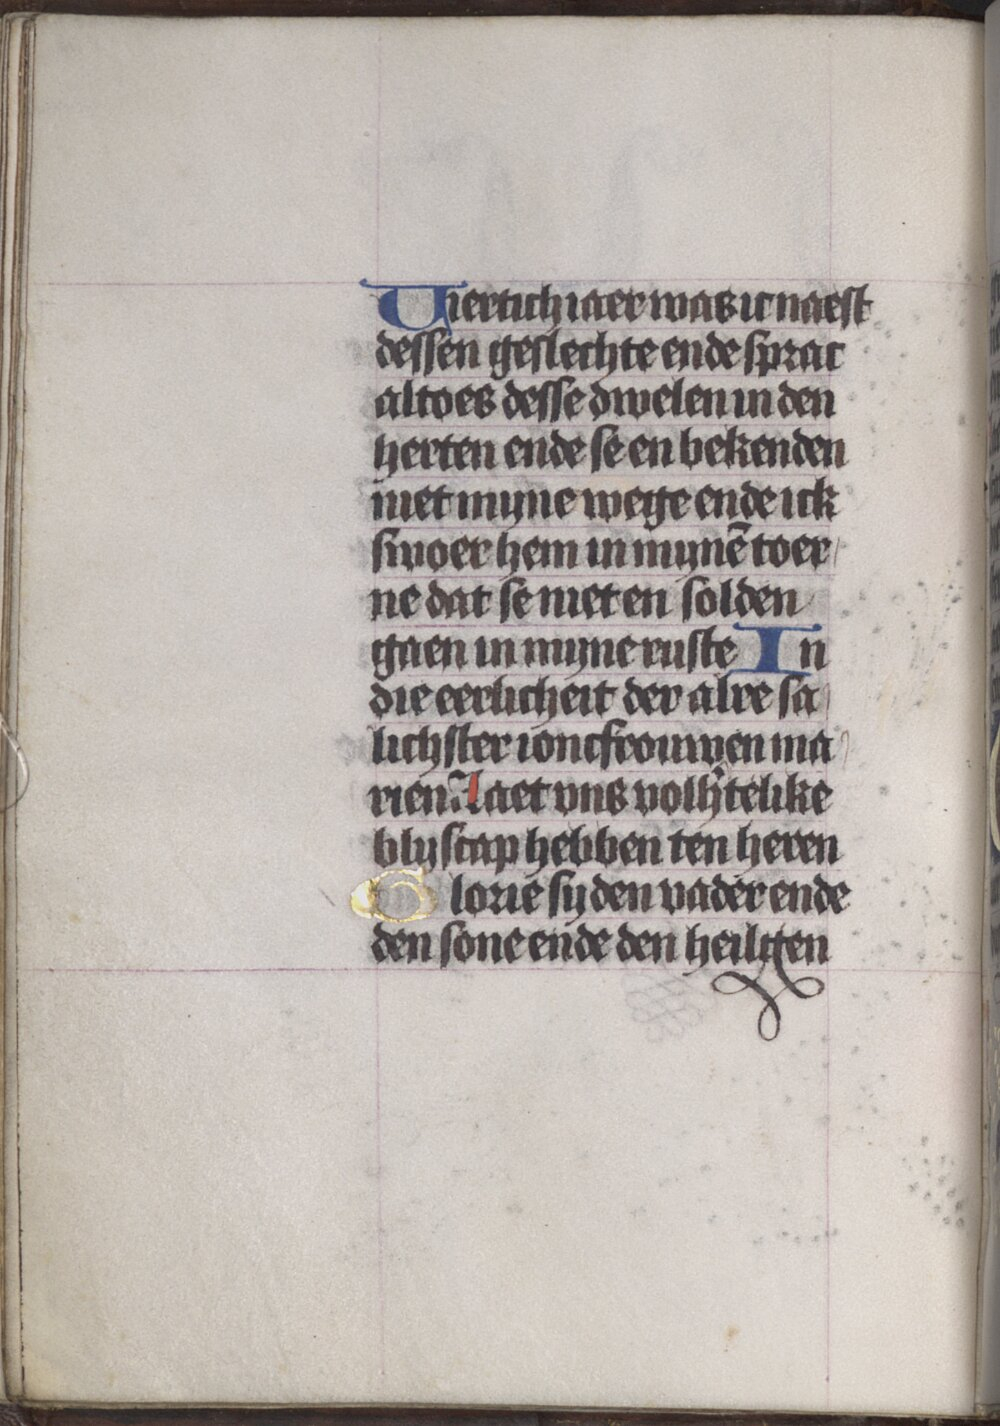 Viertich iaer was ic naest
dessen geslechte ende sprac
altoes desse dwelen in den
herten ende se en bekenden
niet myne wege ende ick
swoer hem in mynē toer
ne dat se niet en solden
gaen in myne ruste In
die eerlicheit der alre sa
lichster ioncfrouwen ma
rien Laet vns volhꝰtelike
blyscap hebben ten heren
Glorie sy den vader ende
den sone ende den heilgen